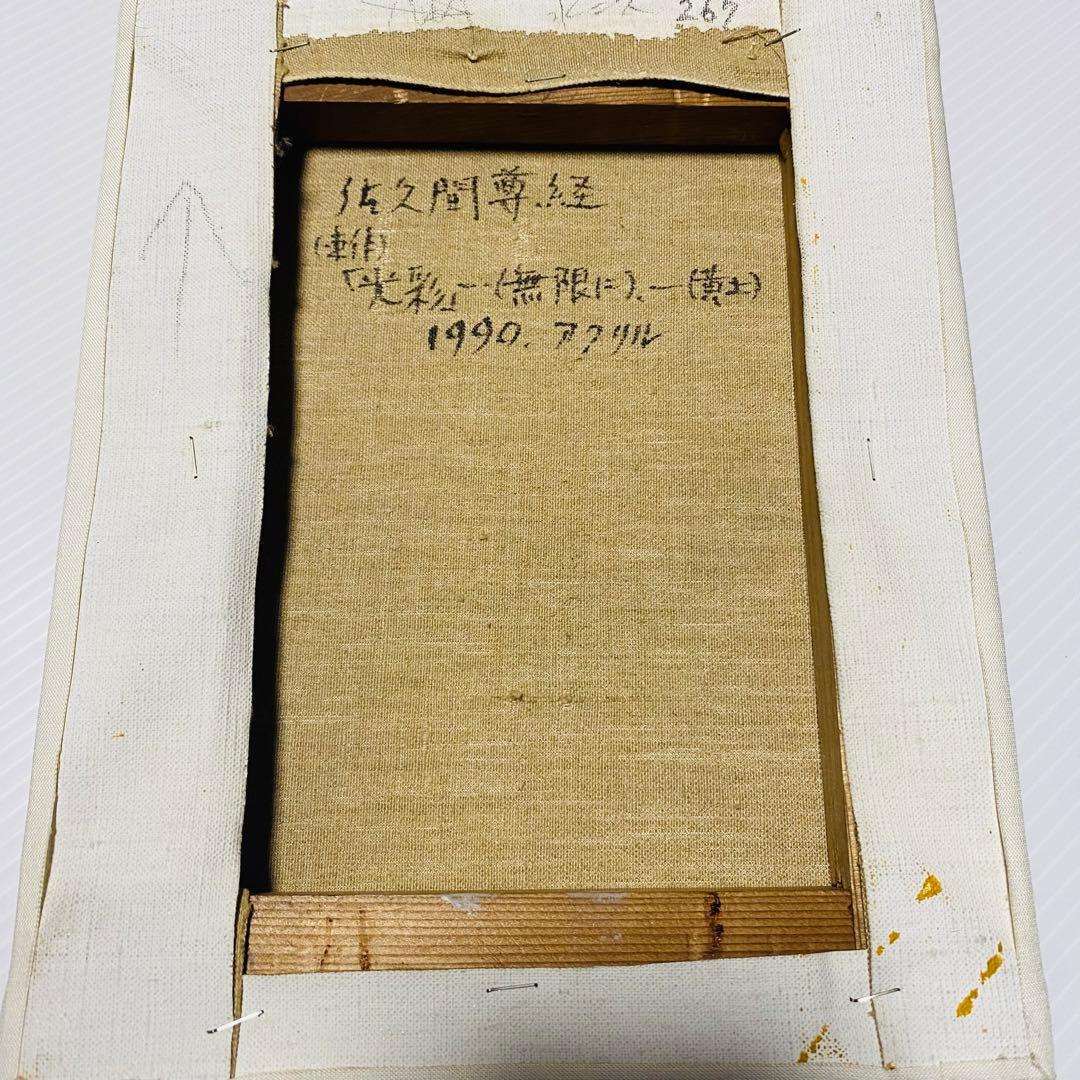 267
佐久間尊経
「光彩」—(無限に)、—(黄土)
1990. アクリル